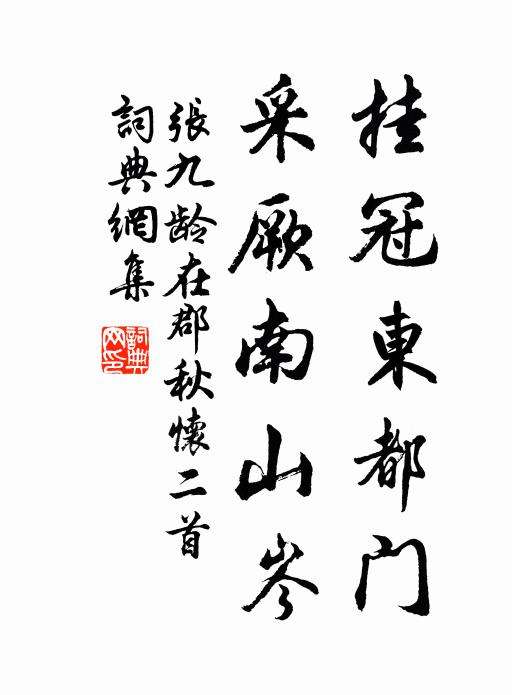 挂冠東都門
采厥南山岑
張九龄在郡秋懷二首
詞典網集
詞典网印